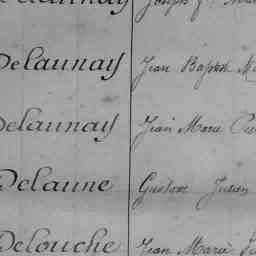 Delaunay Joseph
Delaunay Jean Baptiste
Delaunay Jean Marie
Delaune Gustave Julien
Delouche Jean Marie